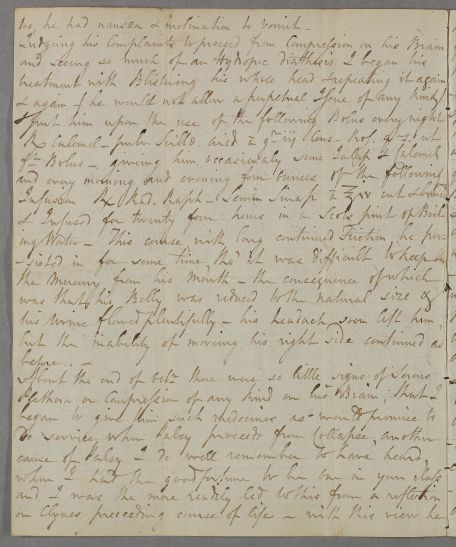 too, he had nausea & inclination to vomit -
Judging his Complaints to proceed from Compression on his Brain
and seeing so much of an Hydropic Diathesis I began his
treatment with Blistering his whole head & repeating it again
& again - if he would not allow a perpetual Issue of any kind
I put him upon the use of the following Bolus every night
℞ Calomel - pulv. Scillæ arid. a gr iij Cons. Ros. q. s. ut
ft. Bolus - giving him occasionaly some Jalap & Calomel
and every morning and evening four ounces of the following
Infusion ℞ Rad. Raph. - Semin Sinap. a ℥ cut & bruised
& Infused for twenty four hours in a Scots pint of Boil
ing Water - This course with long continued Friction, he per-
sisted in for some time tho' it was difficult to keep
the Mercury from his mouth - the consequence of which
was that his Belly was reduced to the natural size &
his urine flowed plentifully - his headach soon left him,
but the inability of moving his right side continued as
before. -
About the end of Octr there were so little signs of Serous
Plethora or Compression of any kind on his Brain, that I
began to give him such Medicines as wou'd promise to
do service, when Palsy proceeds from Collapse, another
cause of Palsy I do well remember to have heard,
when I had the good fortune to be one in your Class
and I was the more readily led to this from a reflection
on Clynes preceeding course of life - with this view he